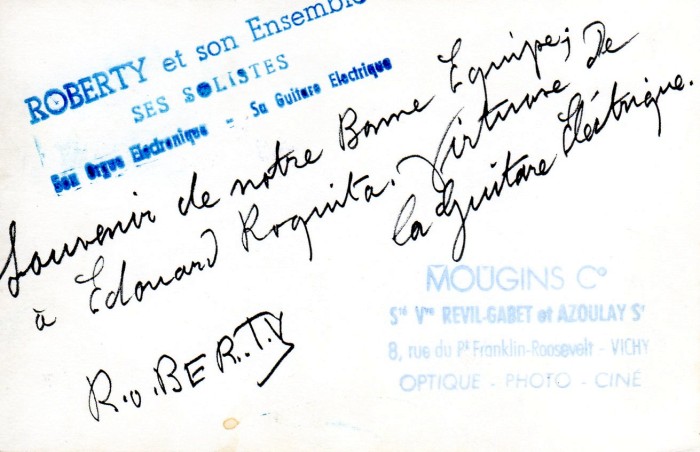 ROBERTY et son Ensemble
SES SOLISTES
Son Orgue Electronique - Sa Guitare Electrique
Souvenir de notre Bonne Equipe;
à Edouard Roquita. Virtuose de
la Guitare Eléctrique.
R.o.BER.T.Y
MOUGINS C°
Sté Vve REVIL-GABET et AZOULAY Sr
8, rue du Pt Franklin-Roosevelt - VICHY
OPTIQUE - PHOTO - CINÉ